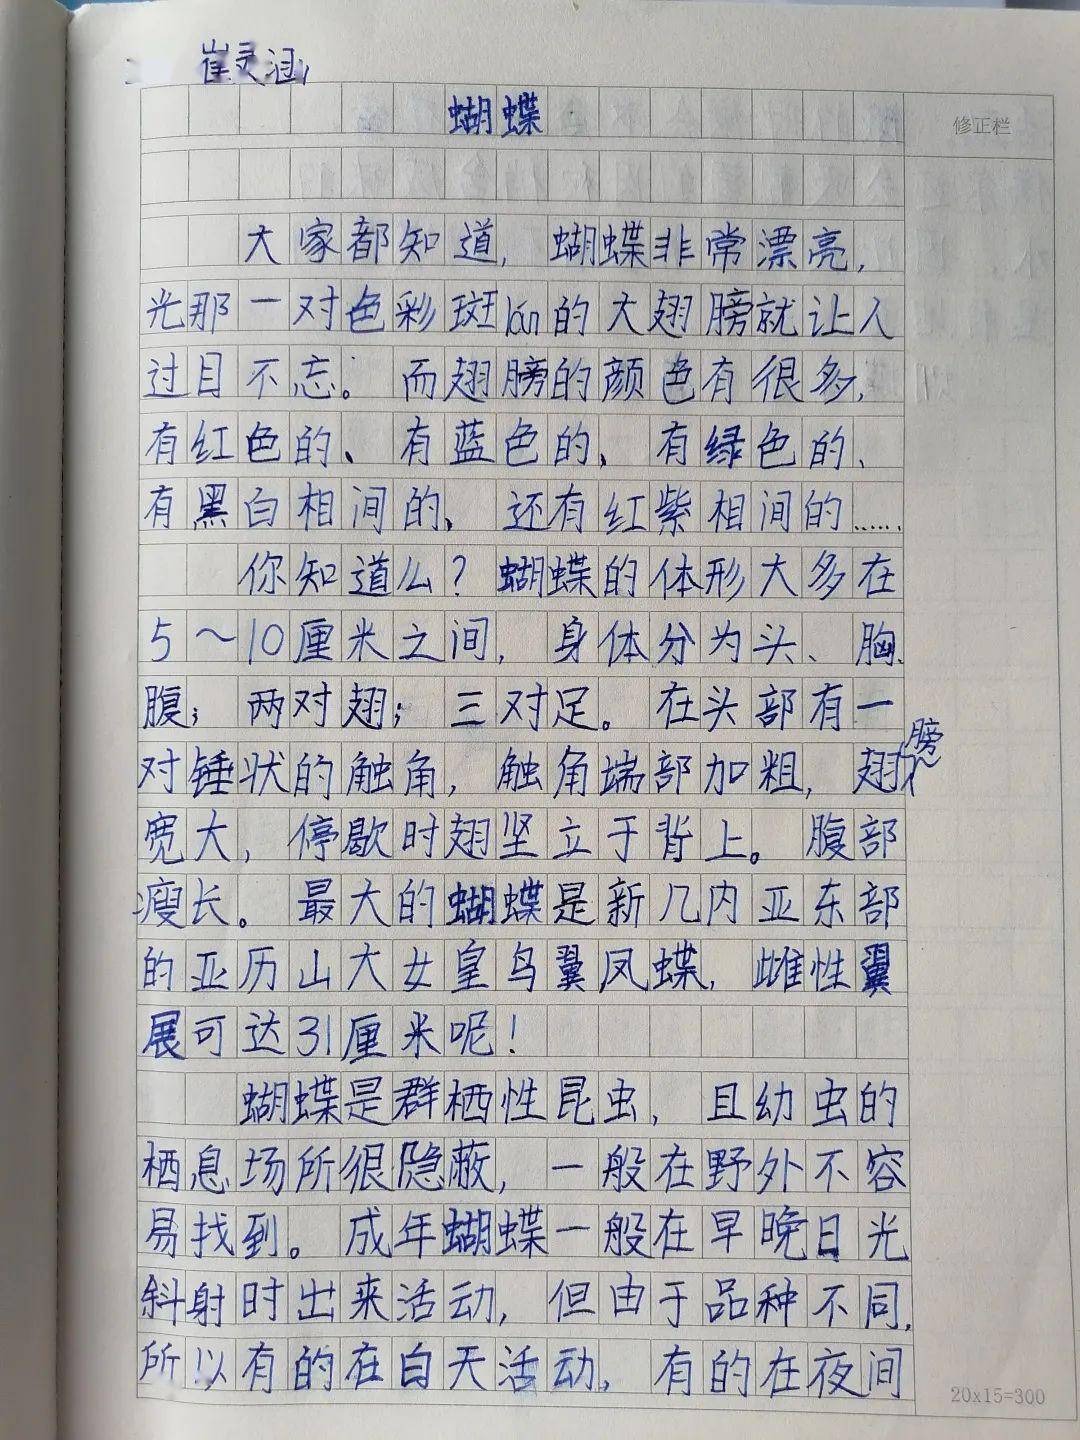 崔灵涵
蝴蝶
修正栏
大家都知道，蝴蝶非常漂亮，
光那一对色彩斑lán的大翅膀就让人
过目不忘。而翅膀的颜色有很多，
有红色的、有蓝色的、有绿色的、
有黑白相间的、还有红紫相间的……
你知道么？蝴蝶的体形大多在
5～10厘米之间，身体分为头、胸、
腹；两对翅；三对足。在头部有一
对锤状的触角，触角端部加粗，翅膀
宽大，停歇时翅坚立于背上。腹部
瘦长。最大的蝴蝶是新几内亚东部
的亚历山大女皇鸟翼凤蝶，雌性翼
展可达31厘米呢！
蝴蝶是群栖性昆虫，且幼虫的
栖息场所很隐蔽，一般在野外不容
易找到。成年蝴蝶一般在早晚日光
斜射时出来活动，但由于品种不同，
所以有的在白天活动，有的在夜间
20x15=300